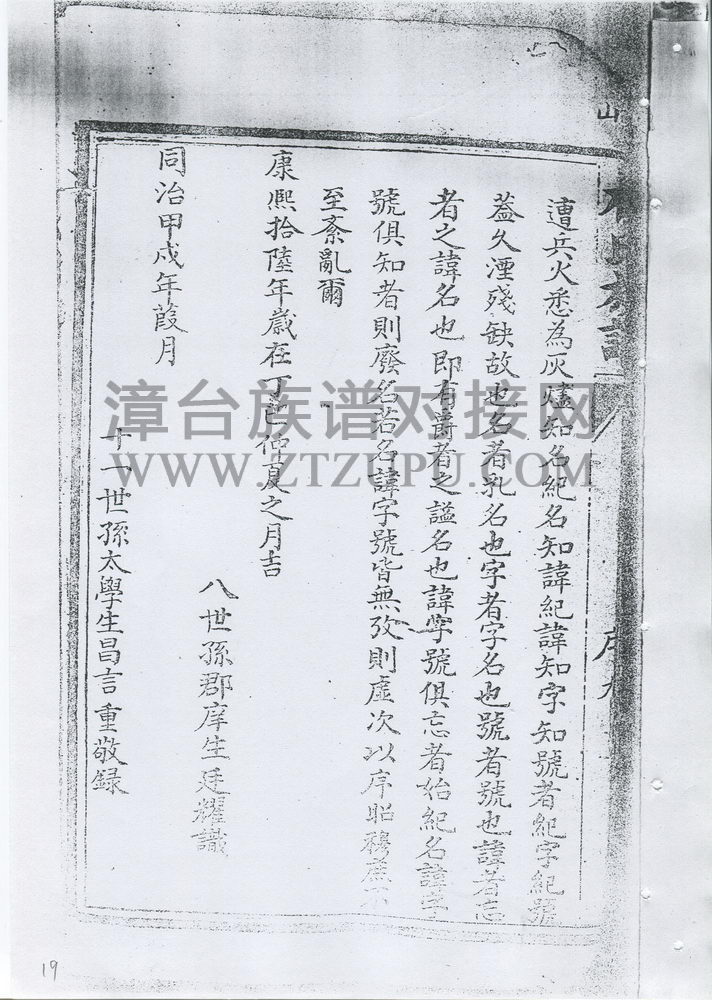 遭兵火悉為灰燼知名紀名知諱紀諱知字知號者紀字紀號
蓋久湮殘缺故也名者乳名也字者字名也號者號也諱者忘
者之諱名也即有爵者之謚名也諱字號俱忘者始紀名諱字
號俱知者則廢名若名諱字號皆無攷則虛次以序昭穆庶不
至紊亂爾
康熙拾陸年歲在丁巳仲夏之月吉
八世孫郡庠生廷耀識
同治甲戌年葭月
十一世孫太學生昌言重敬錄
山
氏族譜
序九
漳台族谱对接网
WWW.ZTZUPU.COM
19